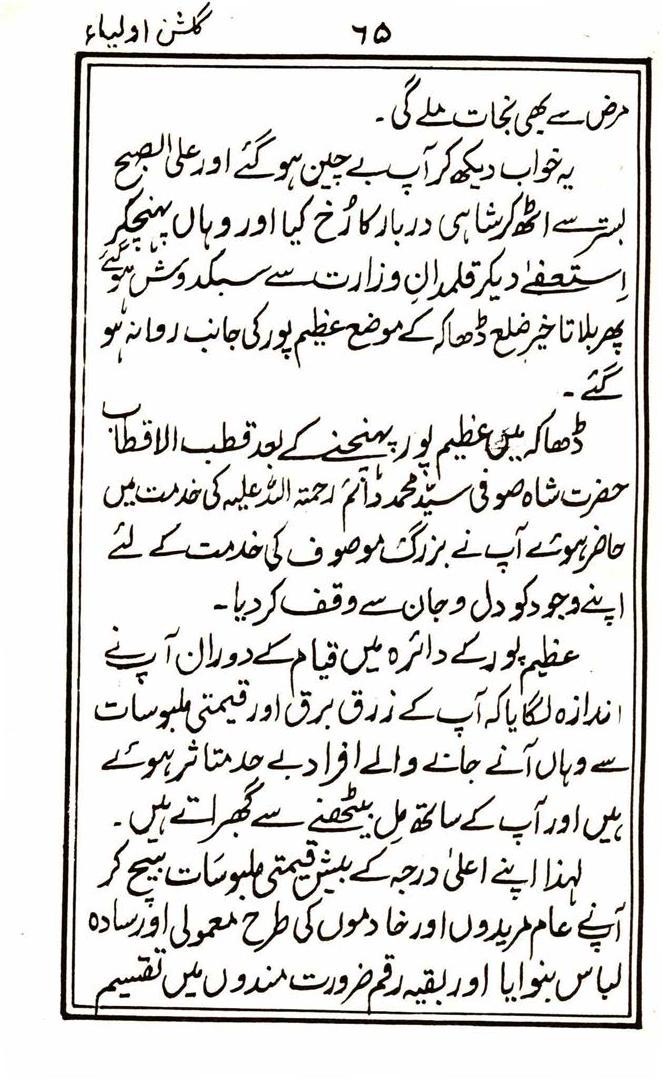 گلشن اولیاء ۶۵
مرض سے بھی نجات ملے گی۔
یہ خواب دیکھ کر آپ بے چین ہو گئے اور علی الصبح
بستر سے اٹھ کر شاہی دربار کا رُخ کیا اور وہاں پہنچکر
اِستعفےٰ دیکر قلمدانِ وزارت سے سبکدوش ہو گئے
پھر بلا تاخیر ضلع ڈھاکہ کے موضع عظیم پور کی جانب روانہ ہو
گئے۔
ڈھاکہ میں عظیم پور پہنچنے کے بعد قطب الاقطاب
حضرت شاہ صوفی سیّد محمد دائم رحمتہ اللہ علیہ کی خدمت میں
حاضر ہوئے آپ نے بزرگ موصوف کی خدمت کے لئے
اپنے وجود کو دل و جان سے وقف کر دیا۔
عظیم پور کے دائرہ میں قیام کے دوران آپ نے
اندازہ لگایا کہ آپ کے زرق برق اور قیمتی ملبوسات
سے وہاں آنے جانے والے افراد بے حد متاثر ہوئے
ہیں اور آپ کے ساتھ مِل بیٹھنے سے گھبراتے ہیں۔
لہذا اپنے اعلیٰ درجہ کے بیش قیمتی ملبوسَات بیچ کر
آپنے عام مریدوں اور خادموں کی طرح معمولی اور سادہ
لباس بنوایا اور بقیہ رقم ضرورت مندوں میں تقسیم